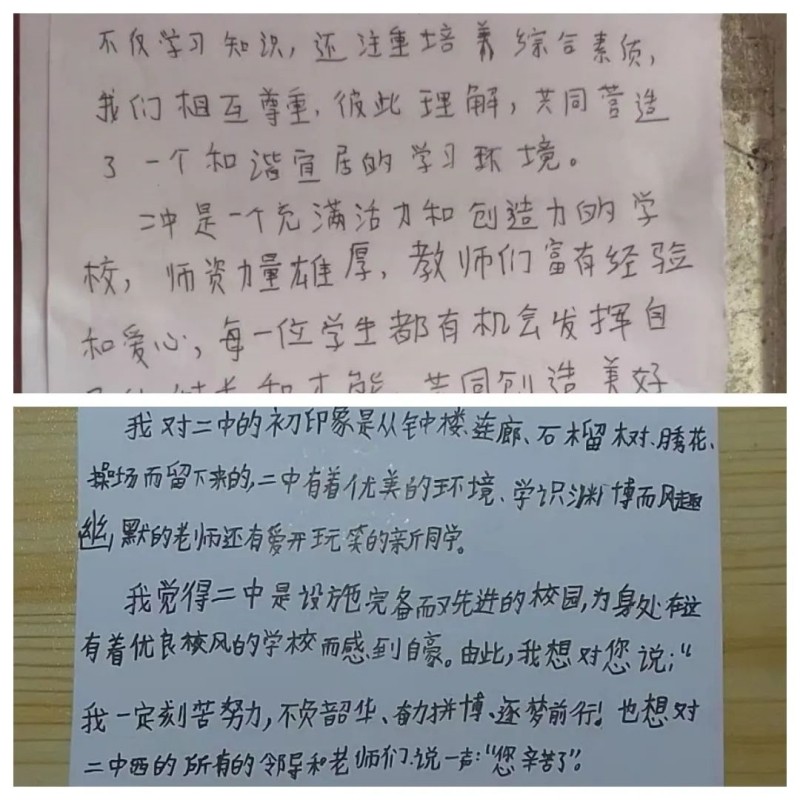 不仅学习知识，还注重培养综合素质，
我们相互尊重，彼此理解，共同营造
了一个和谐宜居的学习环境。
二中是一个充满活力和创造力的学
校，师资力量雄厚，教师们富有经验
和爱心，每一位学生都有机会发挥自
共同创造美好
我对二中的初印象是从钟楼、连廊、石榴树、绣花、
操场而留下来的，二中有着优美的环境、学识渊博而风趣
幽默的老师还有爱开玩笑的新同学。
我觉得二中是设施完备而又先进的校园，为身处在这
有着优良校风的学校而感到自豪。由此，我想对您说："
我一定刻苦努力，不负韶华、奋力拼搏、逐梦前行！也想对
二中西的所有的领导和老师们说一声："您辛苦了"。